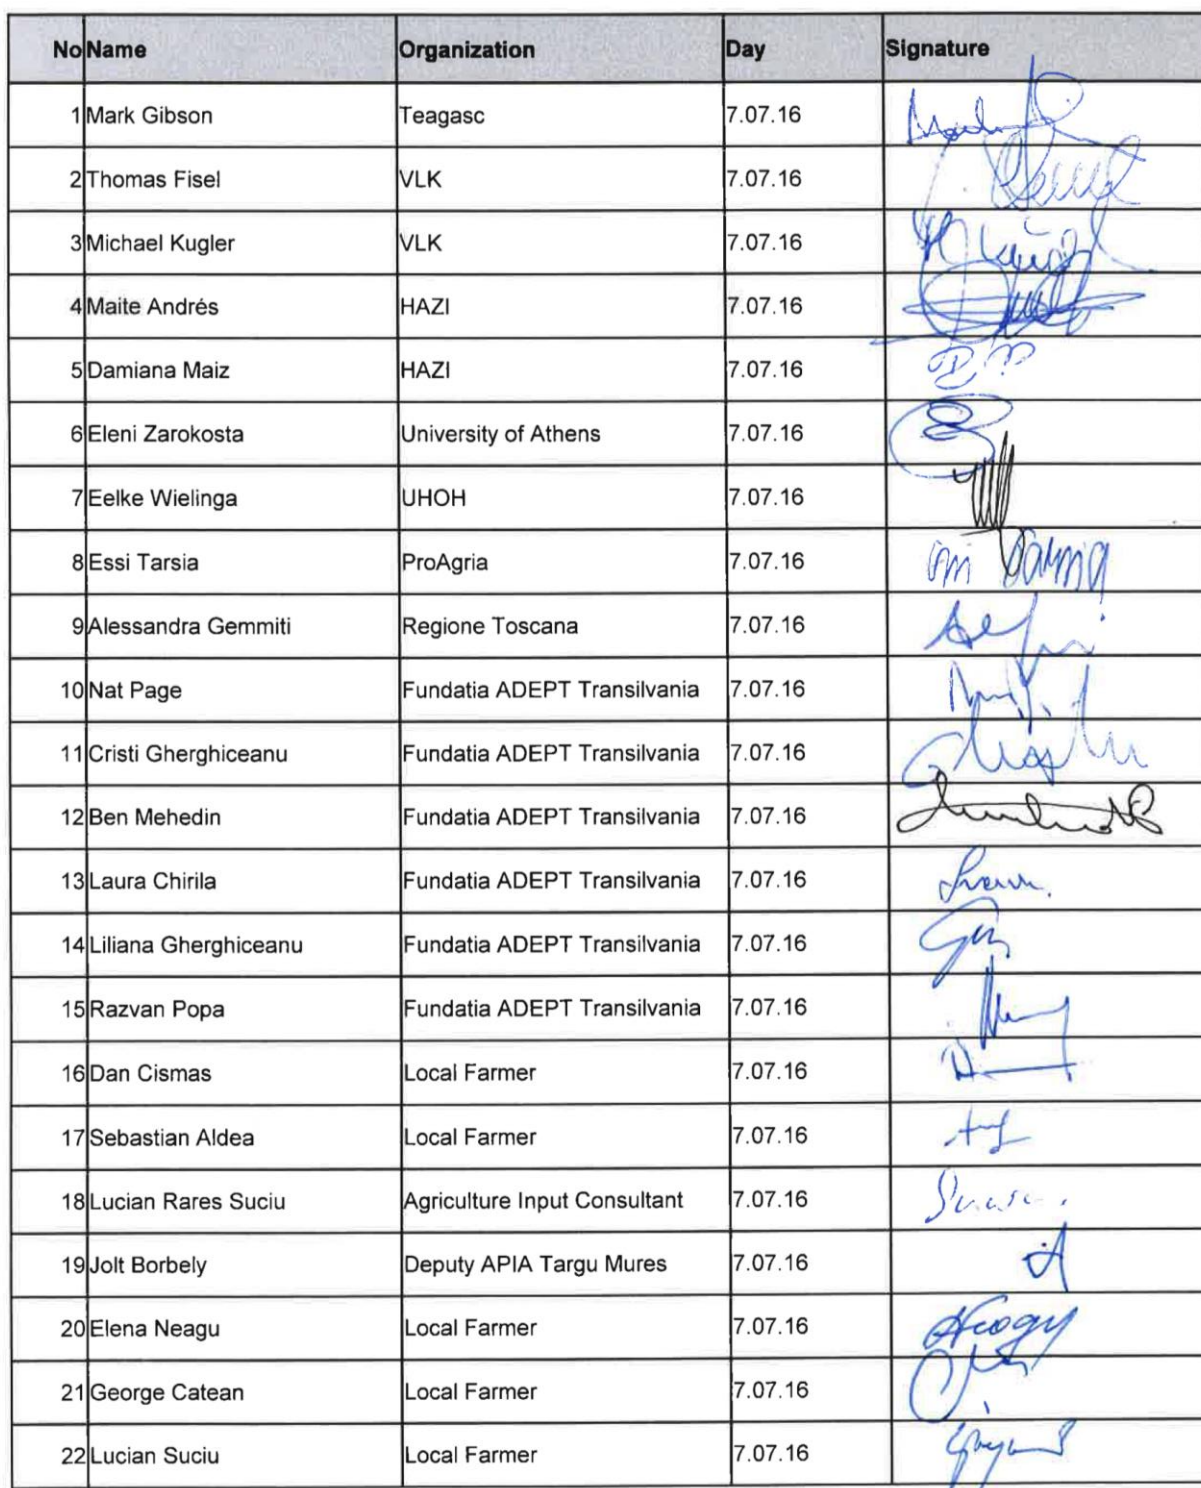 No Name Organization Day Signature
1 Mark Gibson Teagasc 7.07.16
2 Thomas Fisel VLK 7.07.16
3 Michael Kugler VLK 7.07.16
4 Maite Andrés HAZI 7.07.16
5 Damiana Maiz HAZI 7.07.16
6 Eleni Zarokosta University of Athens 7.07.16
7 Eelke Wielinga UHOH 7.07.16
8 Essi Tarsia ProAgria 7.07.16
9 Alessandra Gemmiti Regione Toscana 7.07.16
10 Nat Page Fundatia ADEPT Transilvania 7.07.16
11 Cristi Gherghiceanu Fundatia ADEPT Transilvania 7.07.16
12 Ben Mehedin Fundatia ADEPT Transilvania 7.07.16
13 Laura Chirila Fundatia ADEPT Transilvania 7.07.16
14 Liliana Gherghiceanu Fundatia ADEPT Transilvania 7.07.16
15 Razvan Popa Fundatia ADEPT Transilvania 7.07.16
16 Dan Cismas Local Farmer 7.07.16
17 Sebastian Aldea Local Farmer 7.07.16
18 Lucian Rares Suciu Agriculture Input Consultant 7.07.16
19 Jolt Borbely Deputy APIA Targu Mures 7.07.16
20 Elena Neagu Local Farmer 7.07.16
21 George Catean Local Farmer 7.07.16
22 Lucian Suciu Local Farmer 7.07.16